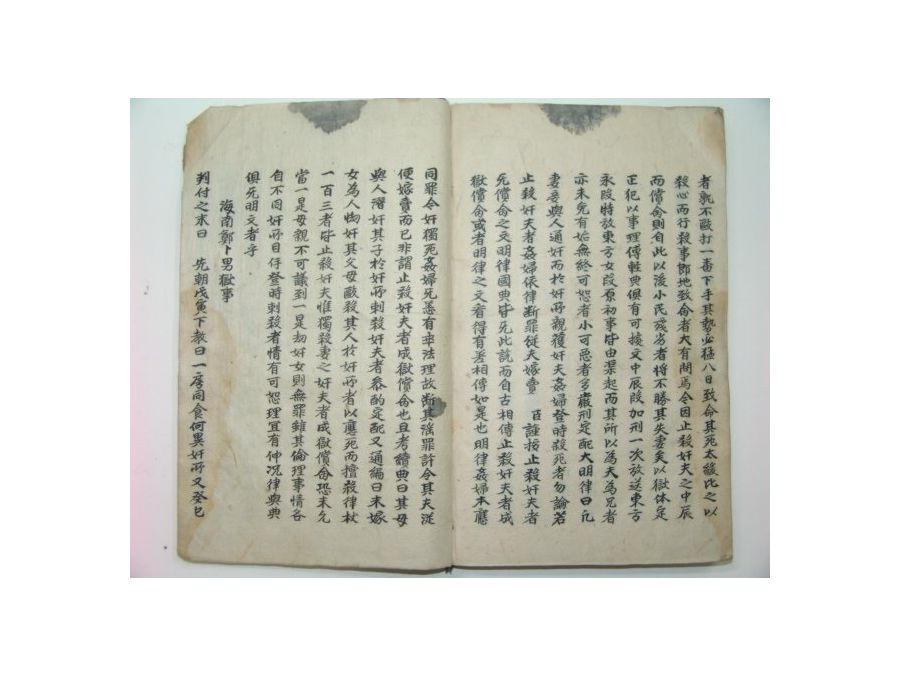 者孰不毆打一番下手其勢必猛八日致命其死太緩比之以
殺心而行殺事即地致命者大有間焉令因止殺奸夫之中辰
而償命則自此以後小民殘劣者將不勝其失妻矣以獄体定
正犯以事理傅輕典俱有可據文中辰段加刑一次放送東方
永段特放東方女段原初事皆由渠起而其所以為夫為兄者
亦未免有始無終可恕者小可惡者多嚴刑定配大明律曰凡
妻妾與人通奸而於奸所親獲奸夫姦婦登時殺死者勿論若
止殺奸夫者姦婦依律斷罪從夫嫁賣 臣謹按止殺奸夫者
元償命之文明律國典皆无此說而自古相傳止殺奸夫者成
獄償命或者明律之文看得有差相傳如是也明律姦婦本應
同罪令奸獨死姦婦免焉有非法理故斷其淫罪許令其夫從
便嫁賣而已非謂止殺奸夫者成獄償命也且考續典曰其母
與人潛奸其子於奸所刺殺奸夫者參酌定配又通編曰未嫁
女為人㤼奸其父母毆殺其人於奸所者以應死而擅殺律杖
一百三者皆止殺奸夫惟獨殺妻之奸夫者成獄償命恐未允
當一是母親不可議到一是劫奸女則無罪雖其倫理事情各
自不同奸所目俘登時刺殺者情有可恕理宜有伸况律與典
俱无明文者乎
海南鄭卜男獄事
判付之末曰 先朝戊寅下教曰一房同食何異奸所又癸巳